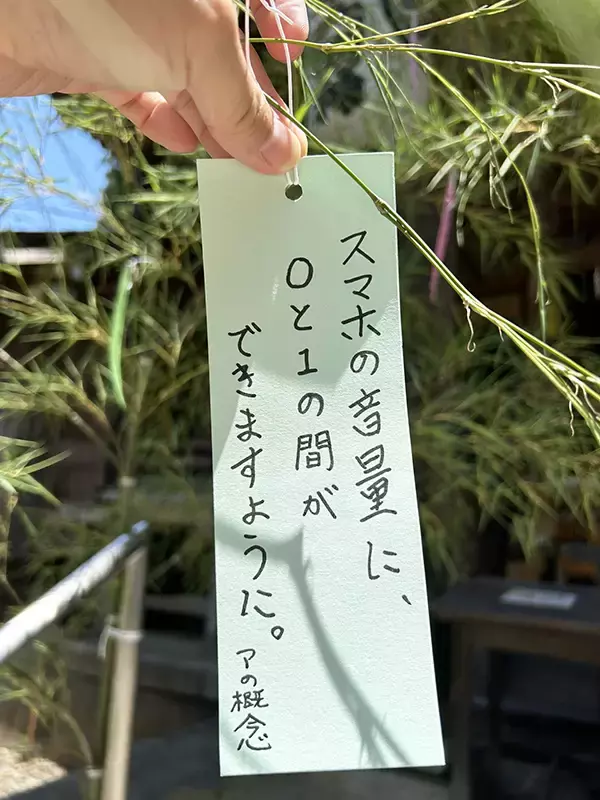 スマホの音量に、
0と1の間が
できますように。
アの概念